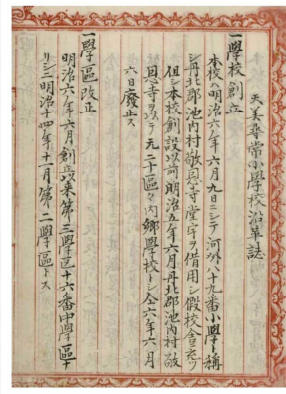 天美尋常小學校沿革誌
一學校ノ創立
本校ハ明治六年六月九日ニシテ河外八十九番小學ト稱
シ丹北郡池内村敬恩寺堂宇ヲ借用シ假校舎ニ充ツ
但シ本校創設以前明治五年六月丹北郡池内村敬
恩寺ヲ以テ元二十區ノ内郷學校トシ仝六年六月
六日廢止ス
一學區改正
明治六年六月創立以来第三學區十六番中學區ナ
リシニ明治十四年十一月第二學區トス